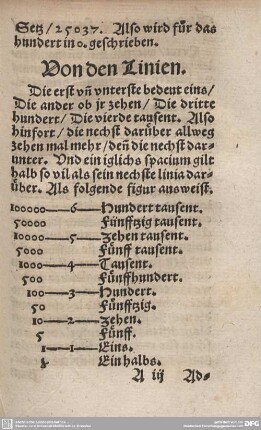 Setz / 25037. Also wird für das
hundert in o. geschrieben.
Von den Linien.
Die erst vñ vnterste bedeut eins /
Die ander ob jr zehen / Die dritte
hundert / Die vierde tausent. Also
hinfort / die nechst darüber allweg
zehen mal mehr / deñ die nechst dar-
unter. Vnd ein iglichs spacium gilt
halb so vil als sein nechste linia dar-
über. Als folgende figur ausweist.
100000 — 6 — Hundert tausent.
50000 Fünfftzig tausent.
10000 — 5 — Zehen tausent.
5000 Fünff tausent.
1000 — 4 — Tausent.
500 Fünffhundert.
100 — 3 — Hundert.
50 Fünfftzig.
10 — 2 — Zehen.
5 Fünff.
1 — 1 — Eins.
½ Ein halbs.
A iij Ad-